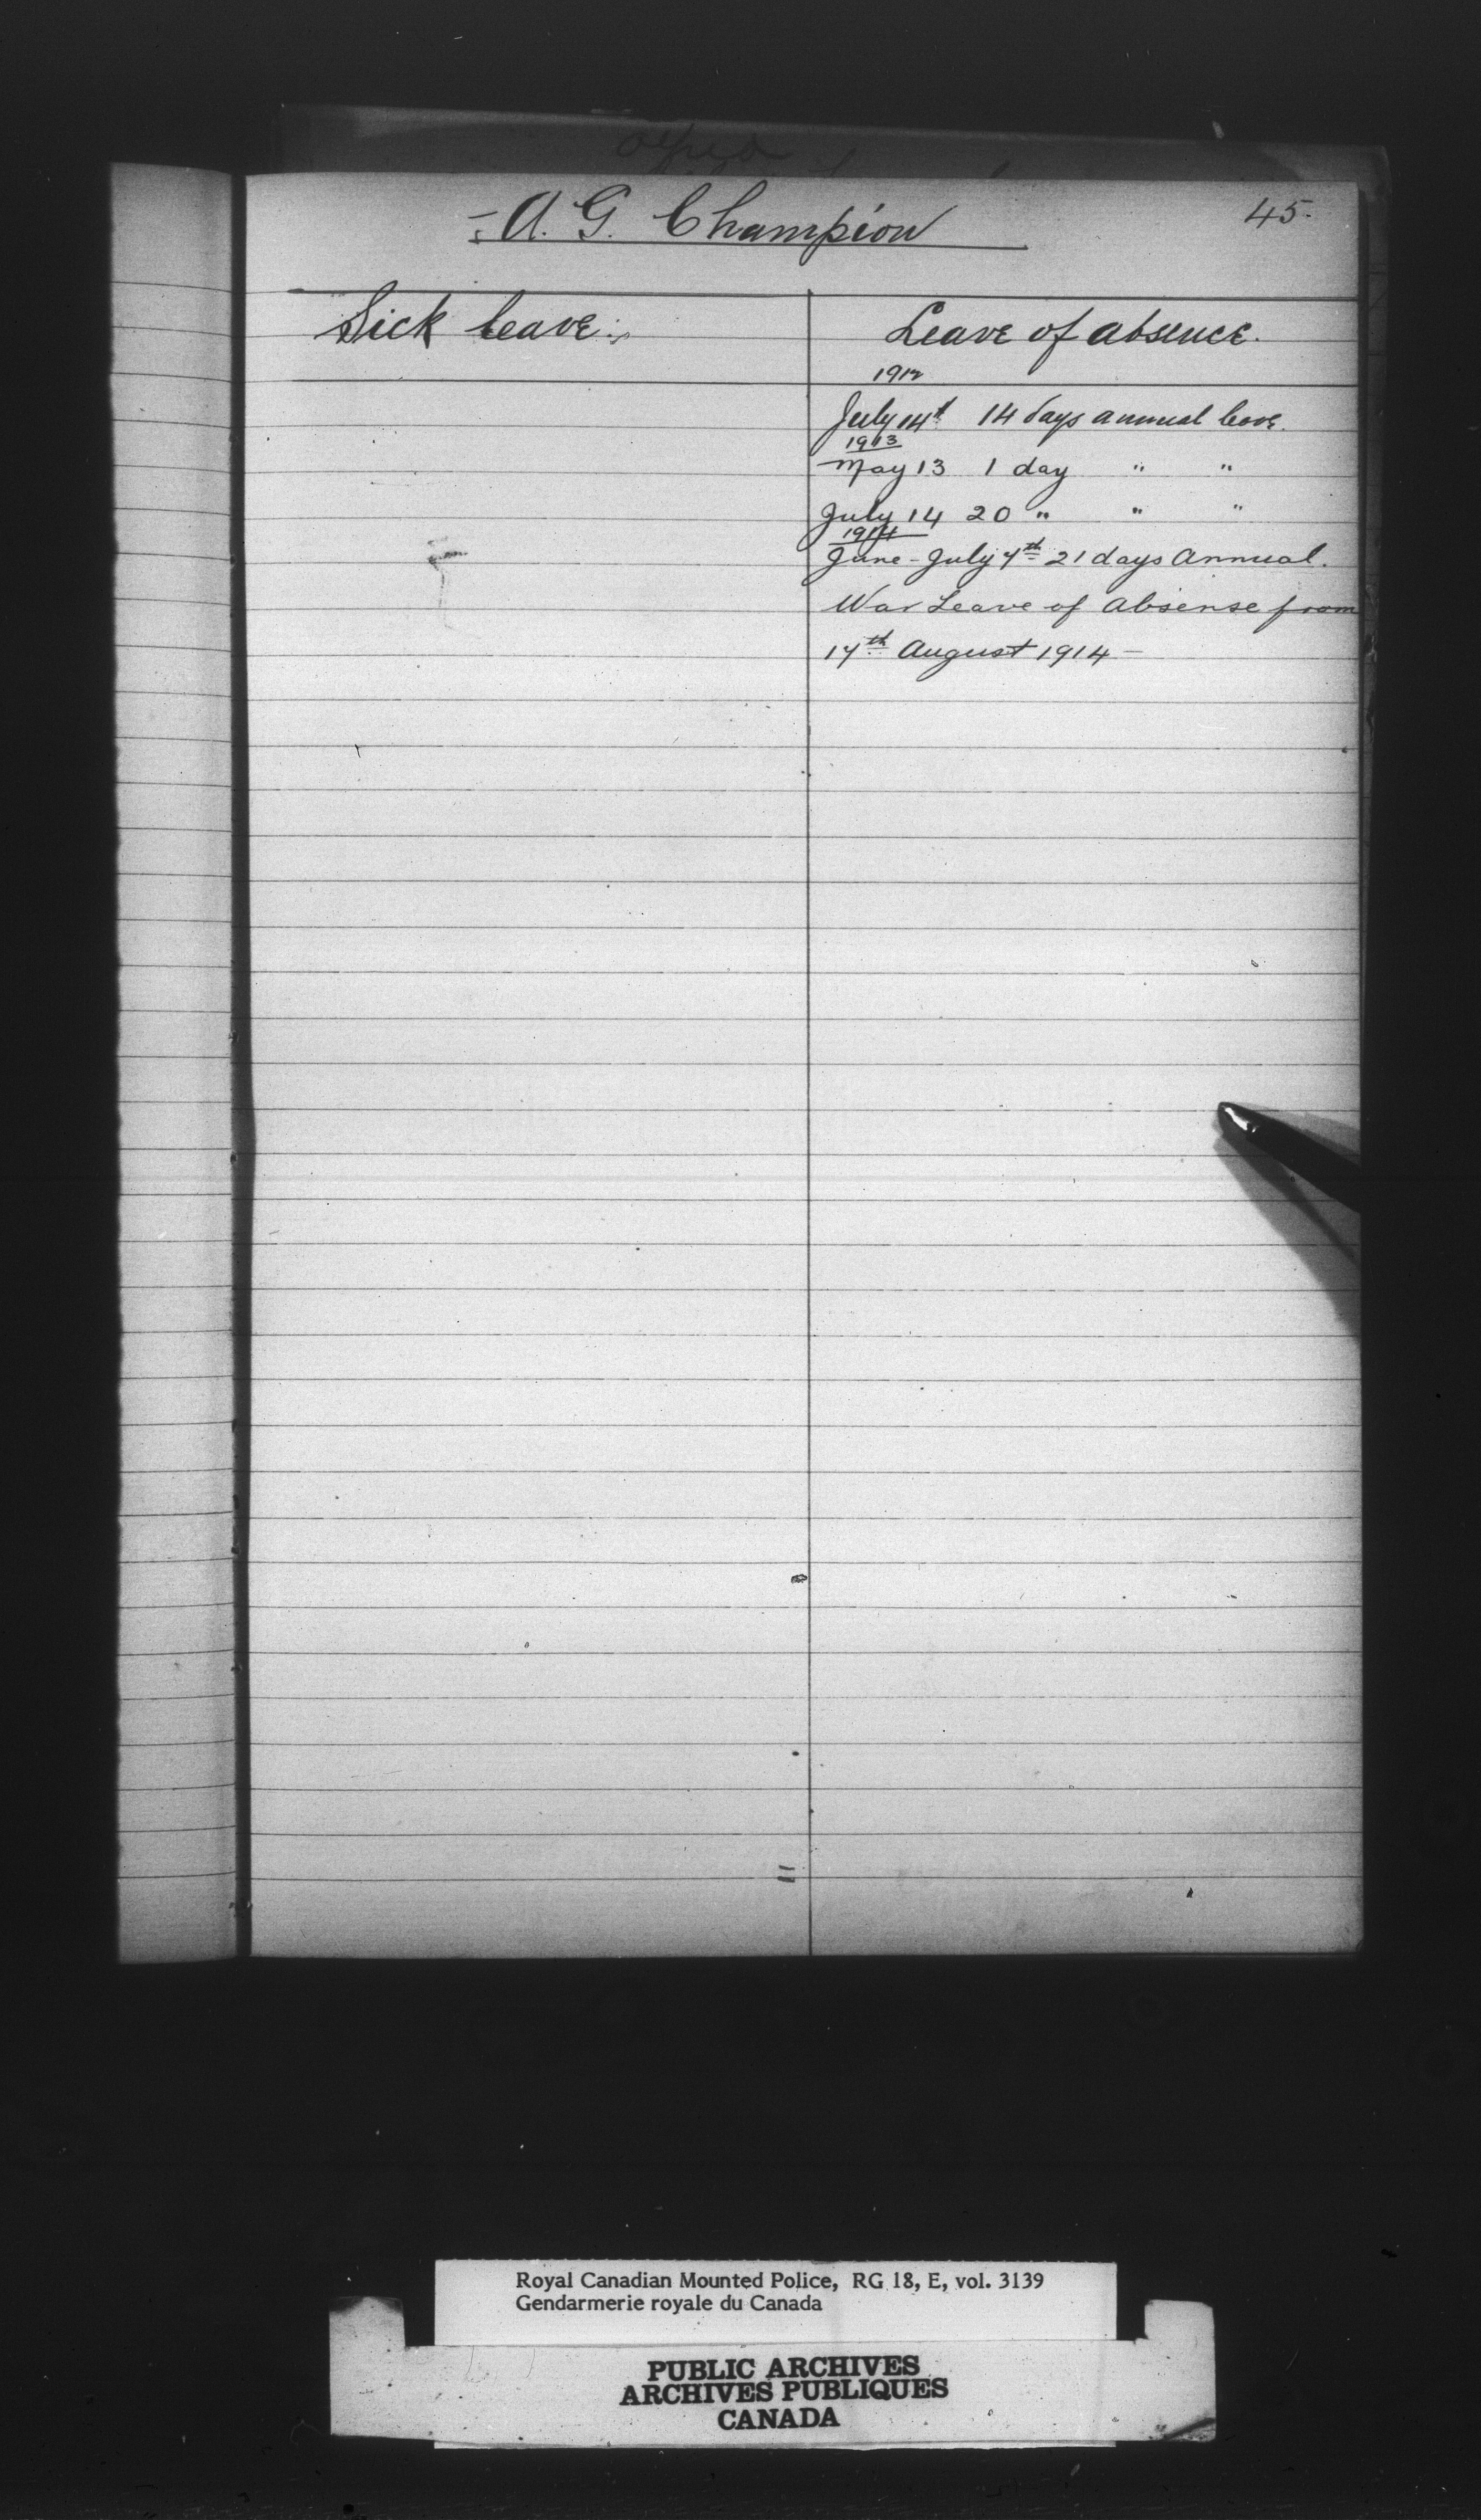 A. G. Champion
45.
Sick leave.
Leave of absence.
1912
July 14th 14 days annual leave.
1913
May 13 1 day " "
July 14 20 " " "
1914
June - July 7th 21 days Annual.
War Leave of Absense from
17th August 1914 -
Royal Canadian Mounted Police, RG 18, E, vol. 3139
Gendarmerie royale du Canada
PUBLIC ARCHIVES
ARCHIVES PUBLIQUES
CANADA